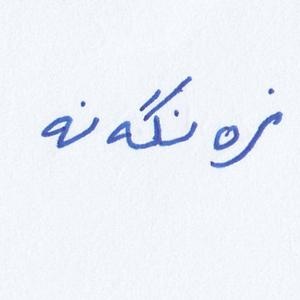 نزە نگە نە